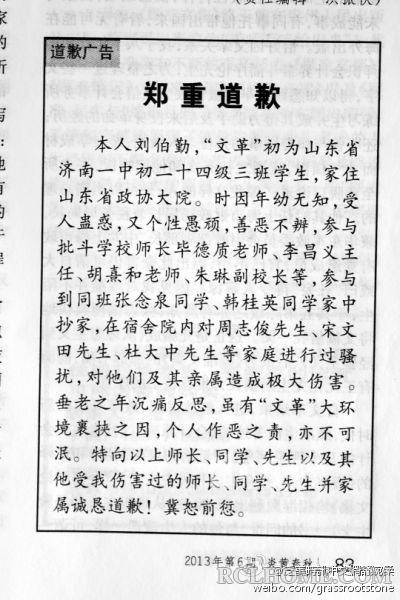 道歉广告
郑重道歉
本人刘伯勤，“文革”初为山东省
济南一中初二十四级三班学生，家住
山东省政协大院。时因年幼无知，受
人蛊惑，又个性愚顽，善恶不辨，参与
批斗学校师长毕德质老师、李昌义主
任、胡熹和老师、朱琳副校长等，参与
到同班张念泉同学、韩桂英同学家中
抄家，在宿舍院内对周志俊先生、宋文
田先生、杜大中先生等家庭进行过骚
扰，对他们及其亲属造成极大伤害。
垂老之年沉痛反思，虽有“文革”大环
境裹挟之因，个人作恶之责，亦不可
泯。特向以上师长、同学、先生以及其
他受我伤害过的师长、同学、先生并家
属诚恳道歉！冀恕前愆。
2013年第6期 炎黄春秋 83
RCLHOME.COM
weibo.com/grassrootstone